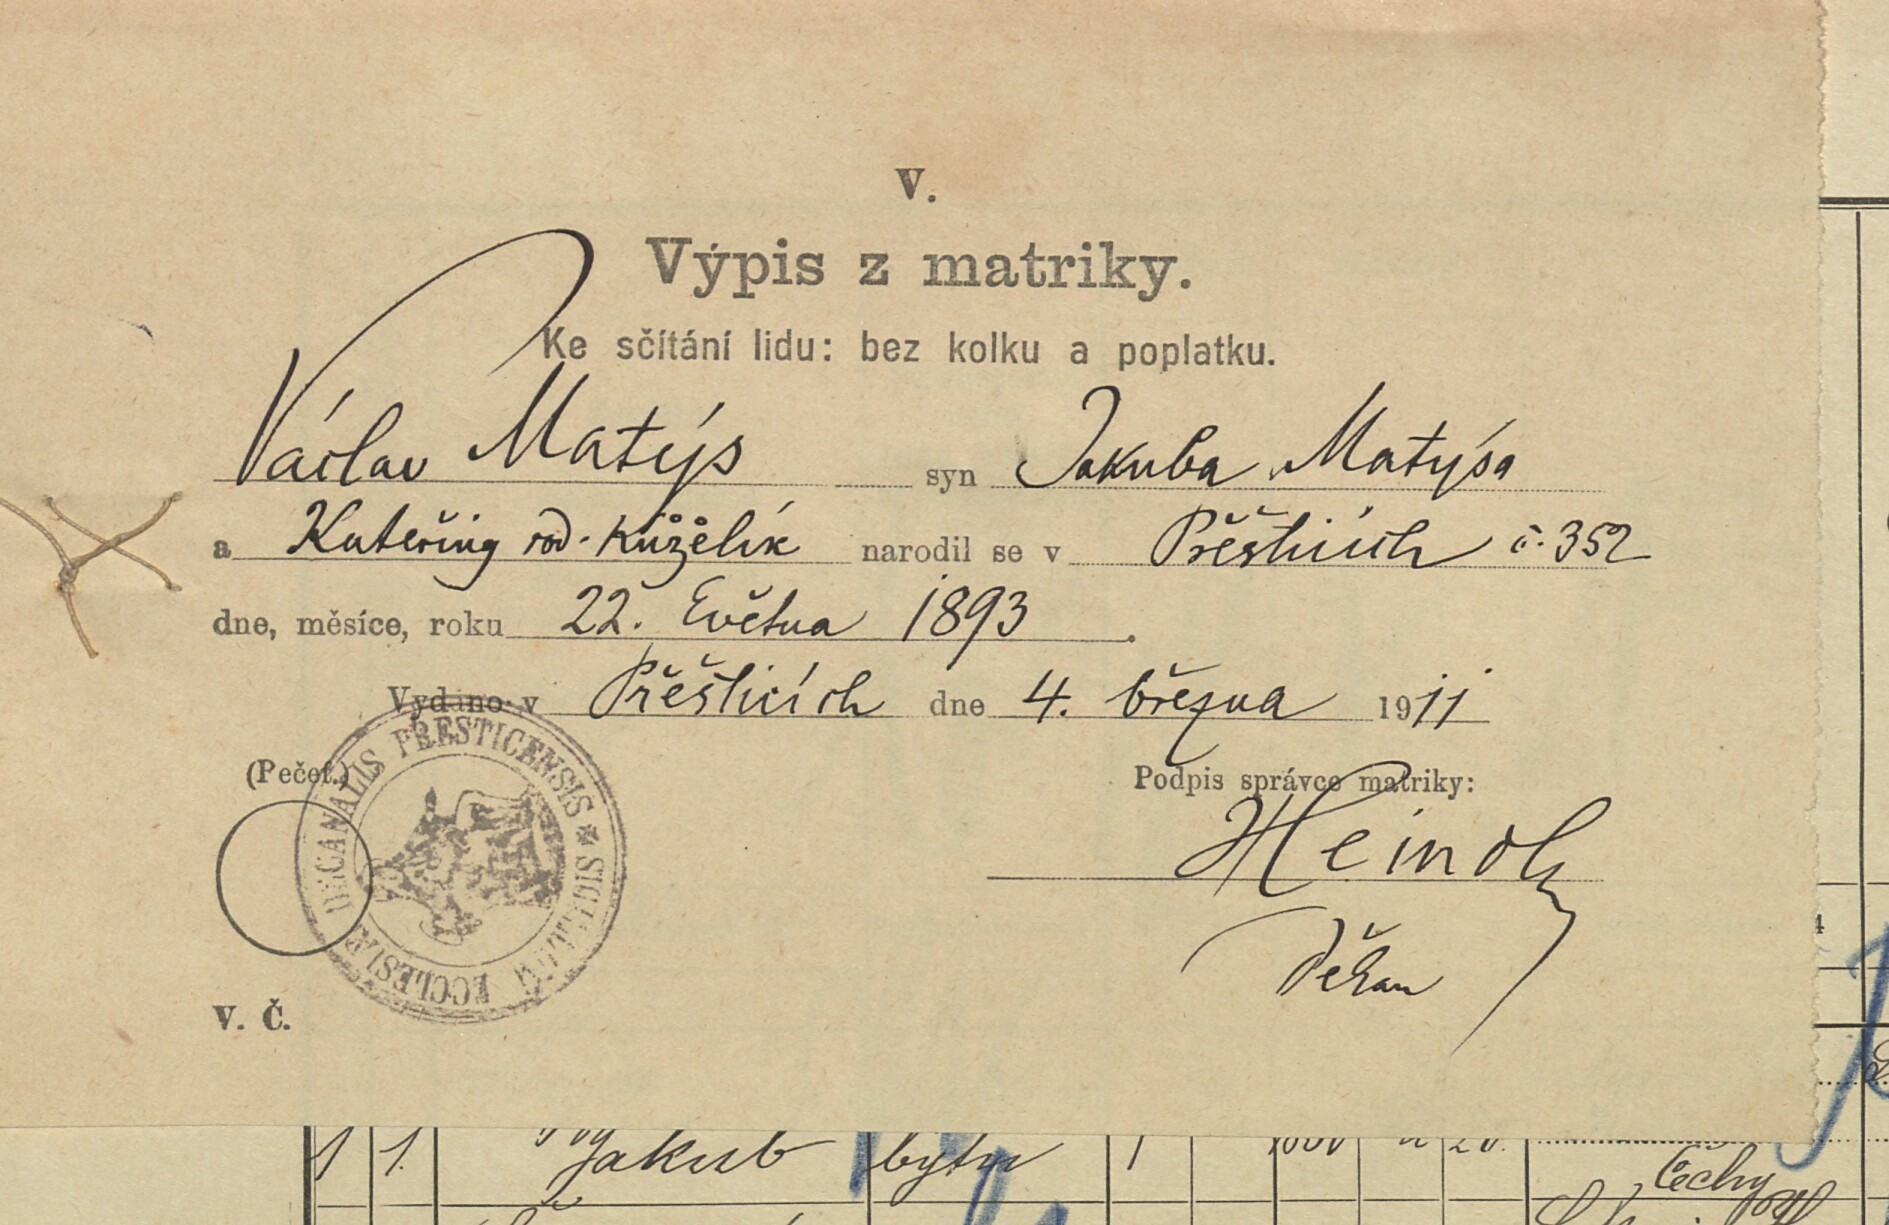 V.
Výpis z matriky.
Ke sčítání lidu: bez kolku a poplatku.
Václav Matýs syn Jakuba Matýsa
a Kateřiny rod. Kůželík narodil se v Přešticích č. 352
dne, měsíce, roku 22. Května 1893.
Vydáno v Přešticích dne 4. března 1911
(Pečeť.) Podpis správce matriky:
SIGILLUM ECCLESIÆ DECANALIS PŘESTICENSIS
Heindl
Děkan
V. Č.
1 1. Jakub bytu 1 20.
Čechy